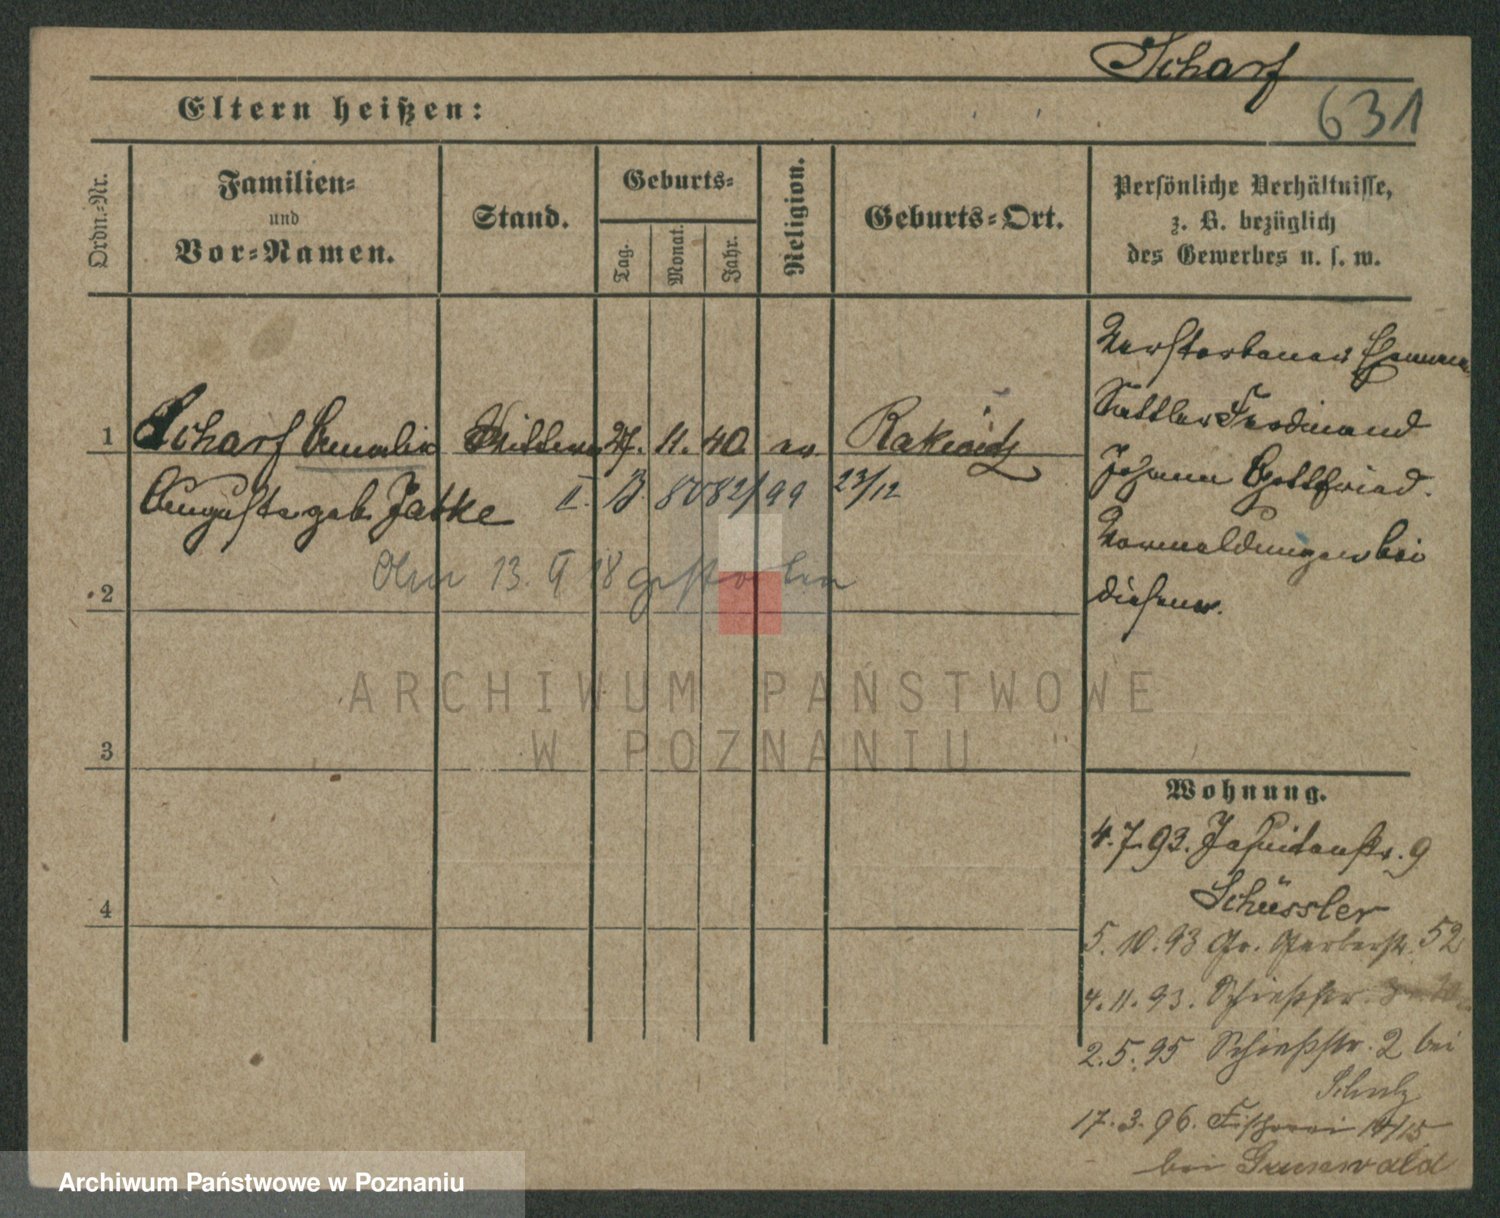 Scharf
631
Eltern heißen:
Ordn.-Nr.
Familien-
und
Vor-Namen.
Stand.
Geburts-
Tag.
Monat.
Jahr.
Religion.
Geburts-Ort.
Persönliche Verhältnisse,
z. B. bezüglich
des Gewerbes u. s. w.
1
Scharf Amalie
Auguste geb. Jatke
Wittwe
27. 11. 40. ev.
Rakwitz
II. B. 8082/99 23/12
Am 13. V 18 gestorben
2
3
4
Verstorbener Ehemann
Sattler Ferdinand
Johann Gottfried.
Vormeldungen bei
diesem.
Wohnung.
4. 7. 93. Jesuitenstr. 9
Schüssler
5. 10. 93 Gr. Gerberstr. 52
4. 11. 93. Schießstr.
2. 5. 95 Schießstr. 2 bei
Schulz
17. 3. 96. Fischerei 14/15
bei Grunwald
ARCHIWUM PAŃSTWOWE
W POZNANIU
Archiwum Państwowe w Poznaniu